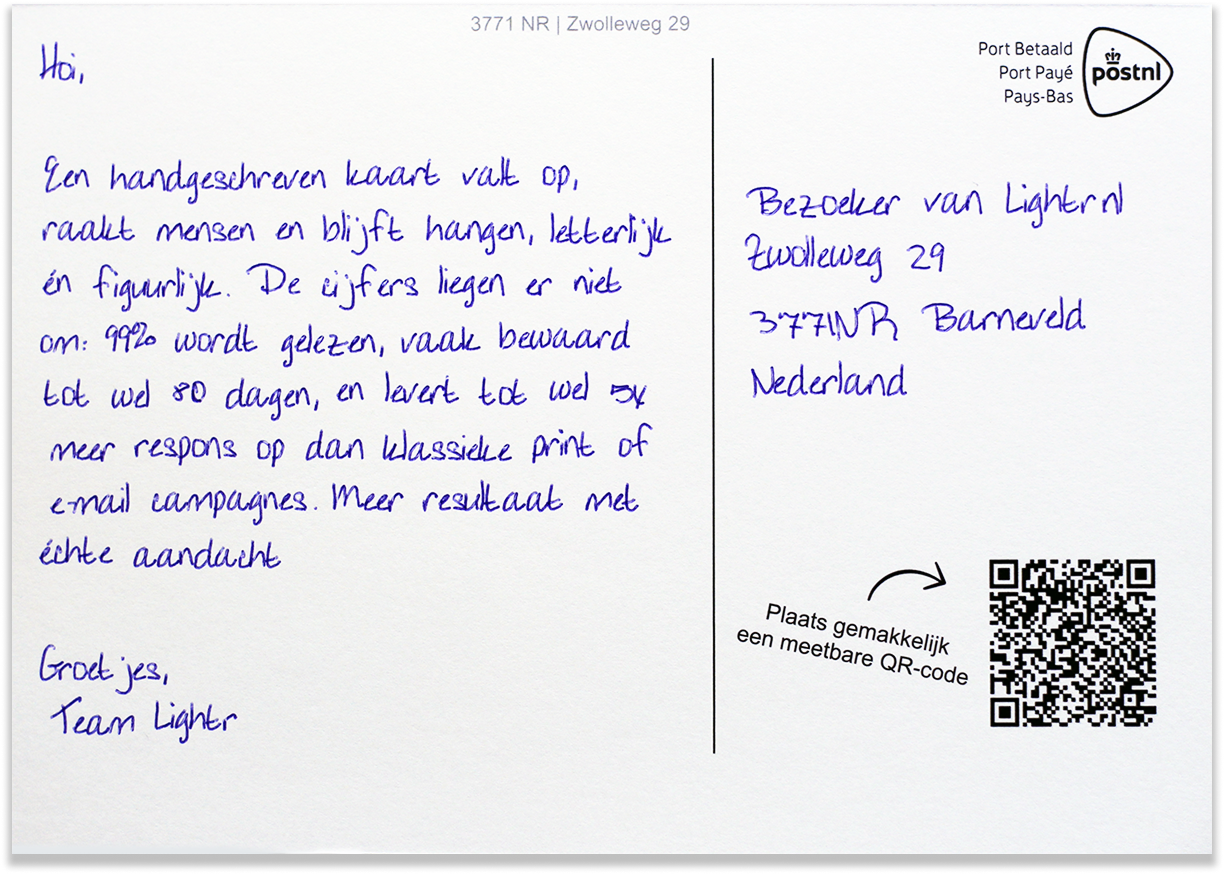 3771 NR | Zwolleweg 29
Hoi,
Een handgeschreven kaart valt op,
raakt mensen en blijft hangen, letterlijk
én figuurlijk. De cijfers liegen er niet
om: 99% wordt gelezen, vaak bewaard
tot wel 80 dagen, en levert tot wel 5x
meer respons op dan klassieke print of
e-mail campagnes. Meer resultaat met
échte aandacht
Groetjes,
Team Lightr
Port Betaald
Port Payé
Pays-Bas
postnl
Bezoeker van Lightr nl
Zwolleweg 29
3771NR Barneveld
Nederland
Plaats gemakkelijk
een meetbare QR-code